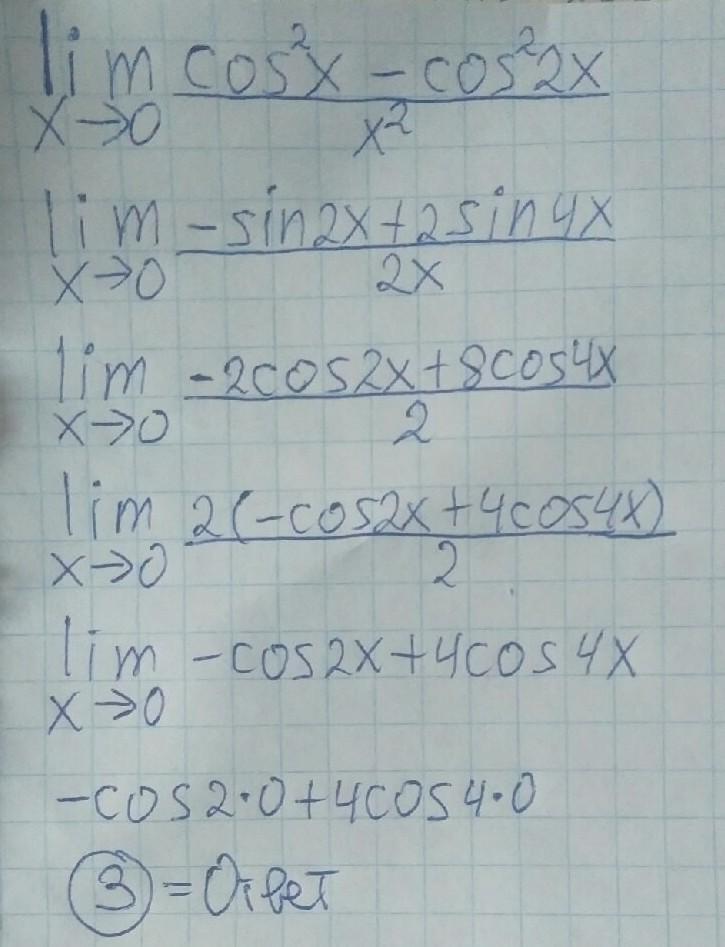 lim cos²x − cos²2x
x→0 x²
lim −sin2x+2sin4x
x→0 2x
lim −2cos2x+8cos4x
x→0 2
lim 2(−cos2x+4cos4x)
x→0 2
lim −cos2x+4cos4x
x→0
−cos2·0+4cos4·0
3 = Ответ